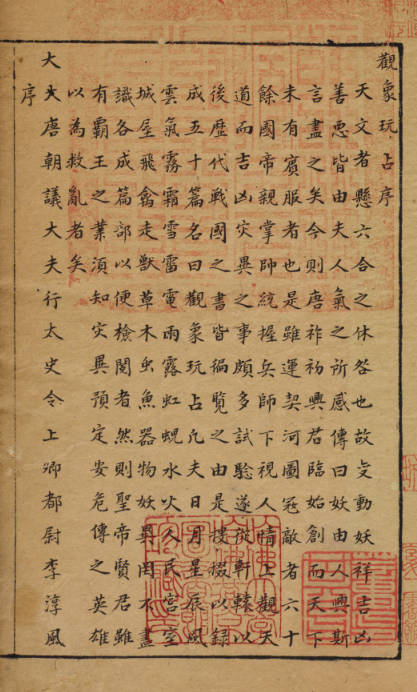 觀象玩占序
天文者懸六合之休咎也故動妖祥吉凶
善惡皆由夫人氣之所感傳曰妖由人興斯
言盡之矣今則唐祚初興君臨始創而天下
未有賓服者也是雖運契河圖冠敵者六十
餘國帝親掌帥統握兵師下視人情上觀天
道而吉凶灾異之事頗多試驗遂從軒轅以
後歷代戰國之書皆徧覽之由是摟掇以録
成五十篇名曰觀象玩占凡夫日月星辰風
雲氣霧霜雪雷電雨露虹蜺水火人民宮室
城屋飛禽走獸草木虫魚器物妖異罔不盡
識各成篇部以便檢閱者然則聖帝賢君雖
有霸王之業須知灾異預定安危傳之英雄
以為救亂者矣
大大唐朝議大夫行太史令上卿都尉李淳風
序